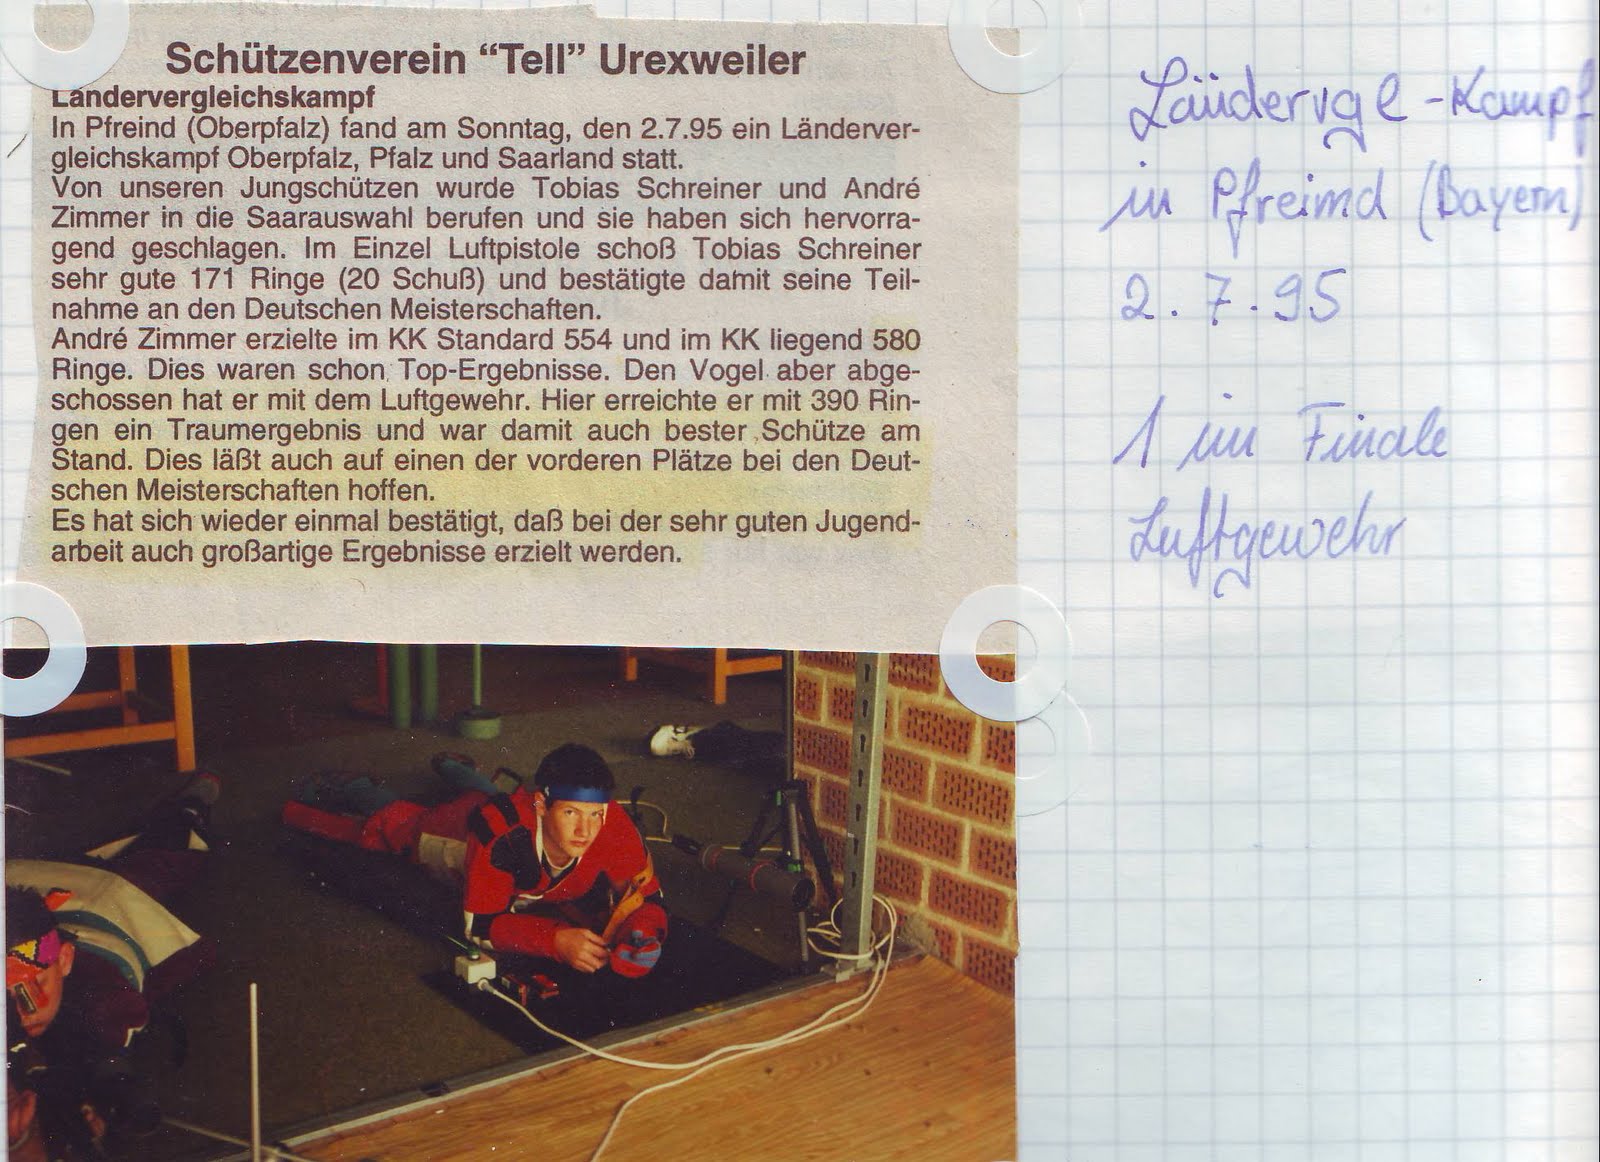 Schützenverein “Tell” Urexweiler
Ländervergleichskampf
In Pfreind (Oberpfalz) fand am Sonntag, den 2.7.95 ein Länderver-
gleichskampf Oberpfalz, Pfalz und Saarland statt.
Von unseren Jungschützen wurde Tobias Schreiner und André
Zimmer in die Saarauswahl berufen und sie haben sich hervorra-
gend geschlagen. Im Einzel Luftpistole schoß Tobias Schreiner
sehr gute 171 Ringe (20 Schuß) und bestätigte damit seine Teil-
nahme an den Deutschen Meisterschaften.
André Zimmer erzielte im KK Standard 554 und im KK liegend 580
Ringe. Dies waren schon Top-Ergebnisse. Den Vogel aber abge-
schossen hat er mit dem Luftgewehr. Hier erreichte er mit 390 Rin-
gen ein Traumergebnis und war damit auch bester Schütze am
Stand. Dies läßt auch auf einen der vorderen Plätze bei den Deut-
schen Meisterschaften hoffen.
Es hat sich wieder einmal bestätigt, daß bei der sehr guten Jugend-
arbeit auch großartige Ergebnisse erzielt werden.
Ländervgl-Kampf
in Pfreimd (Bayern)
2.7.95
1 im Finale
Luftgewehr